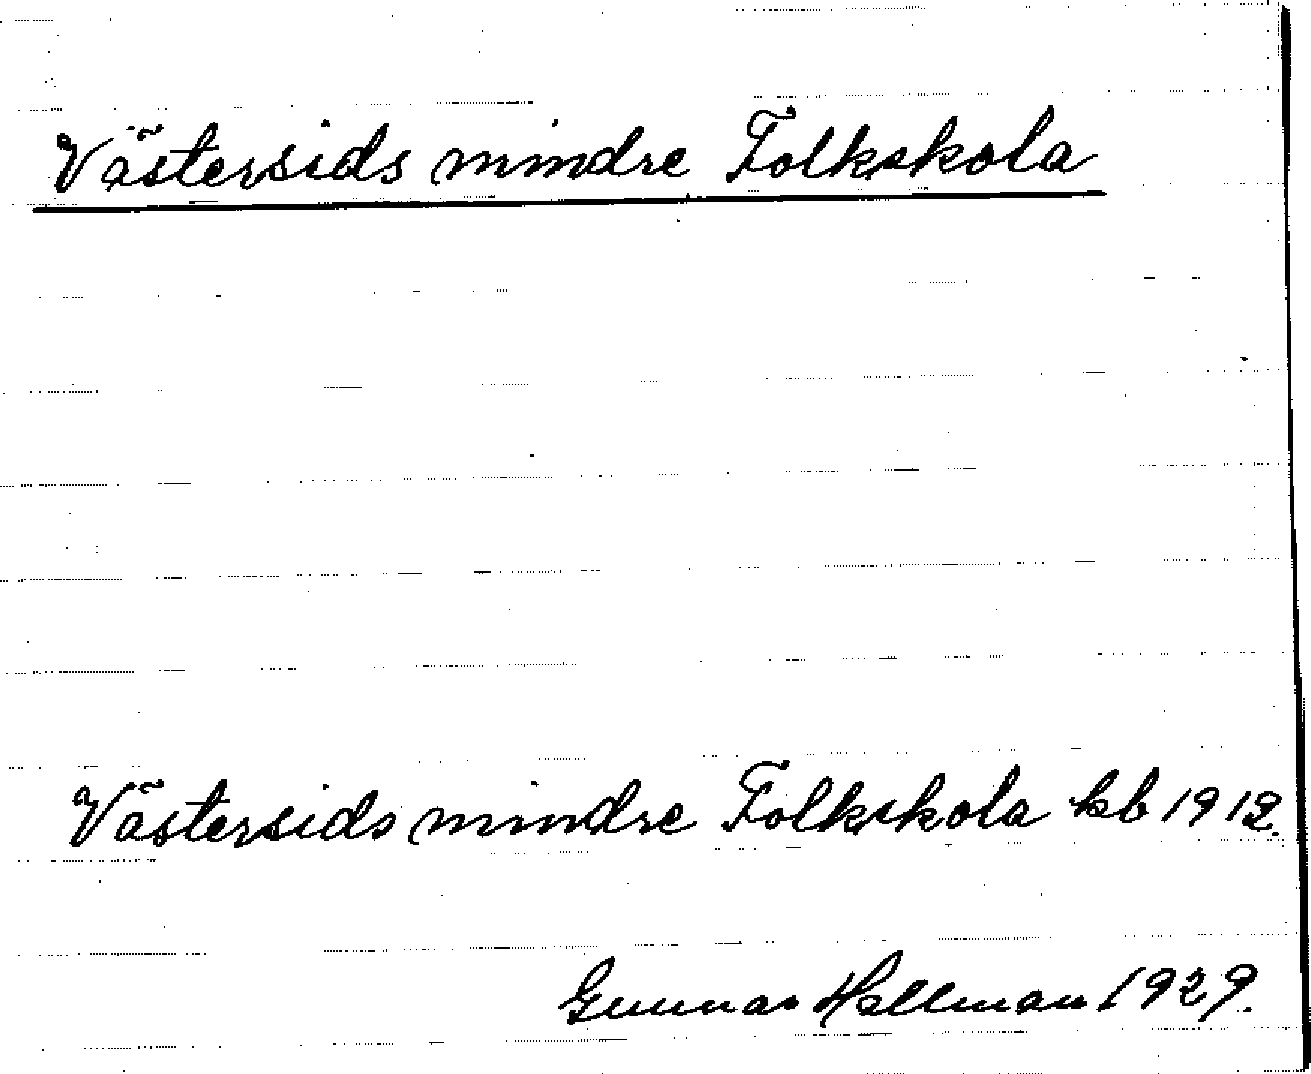 Västersids mindre Folkskola
Västersids mindre Folkskola kb 1912.
Gunnar Hallman 1929.